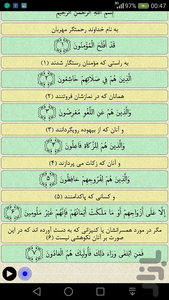 00:47
بِسْمِ اللَّهِ الرَّحْمَنِ الرَّحِيمِ
به نام خداوند رحمتگر مهربان
قَدْ أَفْلَحَ الْمُؤْمِنُونَ ﴿۱﴾
به راستی که مؤمنان رستگار شدند (۱)
الَّذِينَ هُمْ فِي صَلَاتِهِمْ خَاشِعُونَ ﴿۲﴾
همانان که در نمازشان فروتنند (۲)
وَالَّذِينَ هُمْ عَنِ اللَّغْوِ مُعْرِضُونَ ﴿۳﴾
و آنان که از بیهوده رویگردانند (۳)
وَالَّذِينَ هُمْ لِلزَّكَاةِ فَاعِلُونَ ﴿۴﴾
و آنان که زکات می پردازند (۴)
وَالَّذِينَ هُمْ لِفُرُوجِهِمْ حَافِظُونَ ﴿۵﴾
و کسانی که پاکدامنند (۵)
إِلَّا عَلَى أَزْوَاجِهِمْ أَوْ مَا مَلَكَتْ أَيْمَانُهُمْ فَإِنَّهُمْ غَيْرُ مَلُومِينَ ﴿۶﴾
مگر در مورد همسرانشان یا کنیزانی که به دست آورده اند که در این
صورت بر آنان نکوهشی نیست (۶)
فَمَنِ ابْتَغَى وَرَاءَ ذَلِكَ فَأُولَئِكَ هُمُ الْعَادُونَ ﴿۷﴾